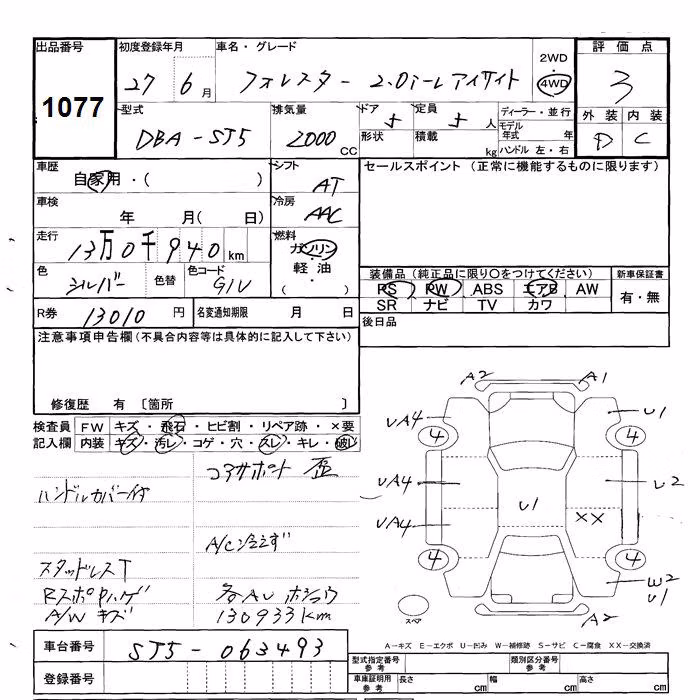 出品番号 初度登録年月 車名・グレード 2WD 評価点
1077 27 6月 フォレスター 2.0i-L アイサイト 4WD 3
型式 排気量 ドア 定員 ディーラー・並行 外装 内装
DBA-SJ5 2000 CC 5 5 人 モデル年式 年 D C
形状 積載 kg ハンドル 左・右
車歴 シフト セールスポイント (正常に機能するものに限ります)
自家用・( ) AT
車検 冷房
年 月( 日) AAC
走行 燃料
13万0千940km ガソリン
色 色替 色コード 軽油 装備品(純正品に限り○をつけてください) 新車保証書
シルバー G1U ( ) PS PW ABS エアB AW 有・無
SR ナビ TV カワ
R券 13010 円 名変通知期限 月 日 後日品
注意事項申告欄(不具合内容等は具体的に記入して下さい)
修復歴 有 〔箇所 〕
検査員 FW キズ・飛石・ヒビ割・リペア跡・×要
記入欄 内装 キズ・汚レ・コゲ・穴・スレ・キレ・破レ
コアサポート 歪
ハンドルカバー付
A/C冷えず
スタッドレスT
RスポPハゲ
A/W キズ
130933km
A2 A1
UA4 U1
4 4
UA4 U1 U2
UA4 XX
4 4
W2
U1
スペア A2
A-キズ E-エクボ U-凹み W-補修跡 S-サビ C-腐食 XX-交換済
車台番号 SJ5-063493
型式指定番号 参考 類別区分番号 参考
登録番号 車庫証明用 参考 長さ cm 幅 cm 高さ cm